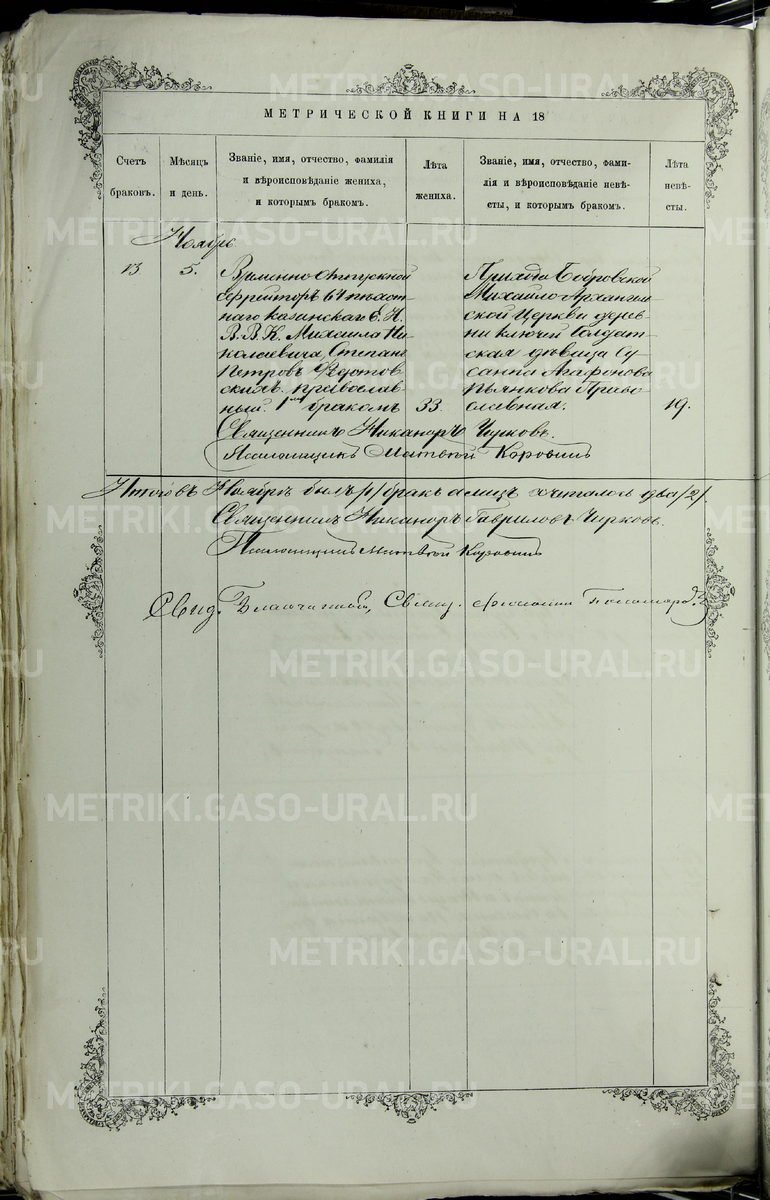 МЕТРИЧЕСКОЙ КНИГИ НА 18
Счетъ браковъ.
Мѣсяцъ и день.
Званіе, имя, отчество, фамилія и вѣроисповѣданіе жениха, и которымъ бракомъ.
Лѣта жениха.
Званіе, имя, отчество, фами-
лія и вѣроисповѣданіе невѣ-
сты, и которымъ бракомъ.
Лѣта невѣ-
сты.
Ноябрь
13
5.
Временно Отпускной
Ефрейторъ 64 пѣхот
наго казанскаго Е. И.
В. В. К. Михаила Ни
колаевича, Степанъ
Петровъ Федотов
скихъ. православ
ный. 1мъ бракомъ
33.
Прихода Бобровской
Михайло-Архангел
ской Церкви дерев-
ни ключей Солдат-
ская дѣвица Су
санна Агафонова
Пьянкова Право
славная.
19.
Священникъ Никаноръ Чирковъ.
Псаломщикъ Матвѣй Коровинъ
Итого въ Ноябрѣ былъ бракъ а лицъ сочталось два /2/.
Священникъ Никаноръ Гавриловъ Чирковъ.
Псаломщикъ Матвѣй Коровинъ
Свид. Благочинный, Свящ.
METRIKI.GASO-URAL.RU